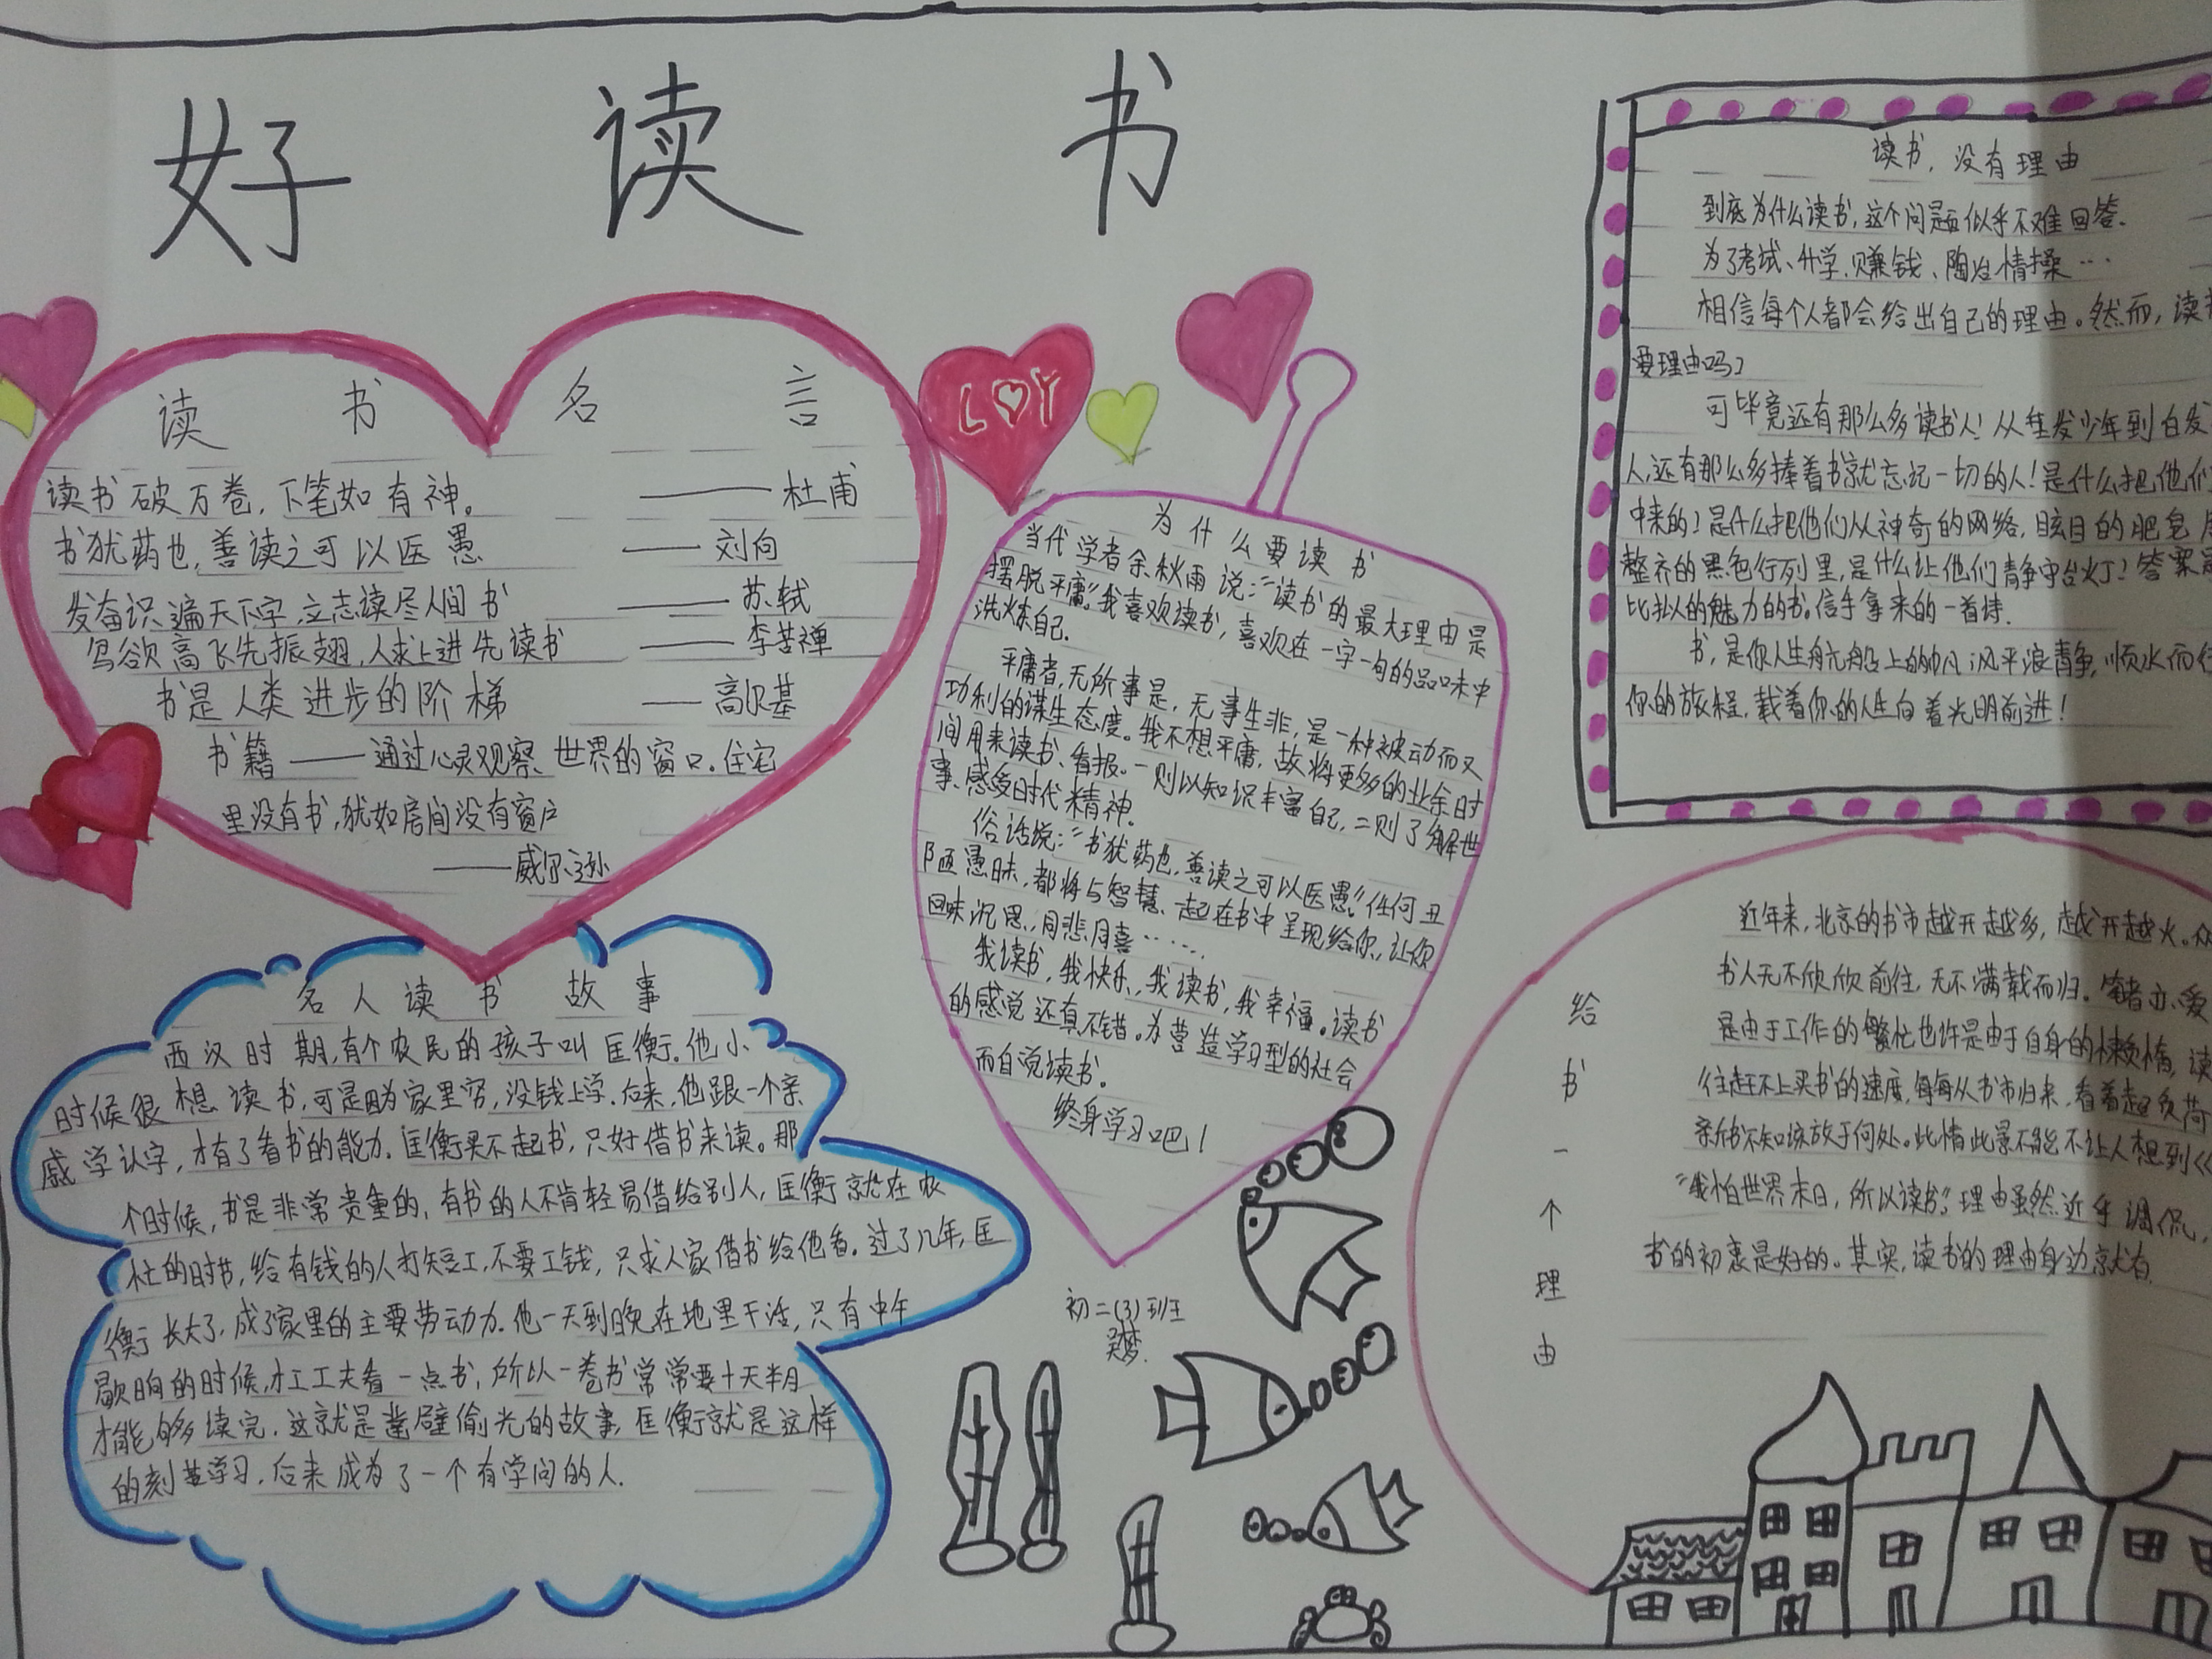 好读书
读书名言
读书破万卷，下笔如有神。——杜甫
书犹药也，善读之可以医愚——刘向
发奋识遍天下字，立志读尽人间书——苏轼
鸟欲高飞先振翅，人求上进先读书——李苦禅
书是人类进步的阶梯——高尔基
书籍——通过心灵观察世界的窗口．住宅
里没有书，犹如房间没有窗户
——威尔逊
LOY
名人读书故事
西汉时期，有个农民的孩子叫匡衡．他小
时候很想读书，可是因为家里穷，没钱上学．后来，他跟一个亲
戚学认字，才有了看书的能力．匡衡买不起书，只好借书来读。那
个时候，书是非常贵重的，有书的人不肯轻易借给别人，匡衡就在农
忙的时节，给有钱的人打短工，不要工钱，只求人家借书给他看．过了几年，匡
衡长大了，成了家里的主要劳动力．他一天到晚在地里干活，只有中午
歇晌的时候，才工工夫看一点书，所以一卷书常常要十天半月
才能够读完．这就是凿壁偷光的故事，匡衡就是这样
的刻苦学习，后来成为了一个有学问的人．
为什么要读书
当代学者余秋雨说：“读书的最大理由是
摆脱平庸”。我喜欢读书，喜欢在一字一句的品味中
洗炼自己．
平庸者，无所事是，无事生非，是一种被动而又
功利的谋生态度。我不想平庸，故将更多的业余时
间用来读书、看报。一则以知识丰富自己，二则了解世
事、感受时代精神．
俗话说：“书犹药也，善读之可以医愚”。任何丑
陋愚昧，都将与智慧一起在书中呈现给你，让你
回味沉思，同悲同喜……．
我读书，我快乐，我读书，我幸福。读书
的感觉还真不错。为营造学习型的社会
而自觉读书．
终身学习吧！
初二(3)班
读书，没有理由
到底为什么读书，这个问题似乎不难回答．
为了考试、升学、赚钱、陶冶情操…
相信每个人都会给出自己的理由。然而，读书
要理由吗？
可毕竟还有那么多读书人！从垂发少年到白发
人，还有那么多捧着书就忘记一切的人！是什么把他们
中来的？是什么把他们从神奇的网络，眩目的肥皂
整齐的黑色行列里，是什么让他们青争守台灯？答案是
比拟的魅力的书．信手拿来的一首诗．
书，是你人生航船上的帆，风平浪静，顺水而行
你的旅程，载着你的人生向着光明前进！
给书一个理由
近年来，北京的书市越开越多，越开越火。众
书人无不欣欣前往，无不满载而归．笔者亦爱
是由于工作的繁忙也许是由于自身的懒惰，读
往赶不上买书的速度，每每从书市归来，看着超负荷
新书不知该放于何处。此情此景不能不让人想到《
“我怕世界末日，所以读书”，理由虽然近乎调侃，
书的初衷是好的。其实，读书的理由身边就有．